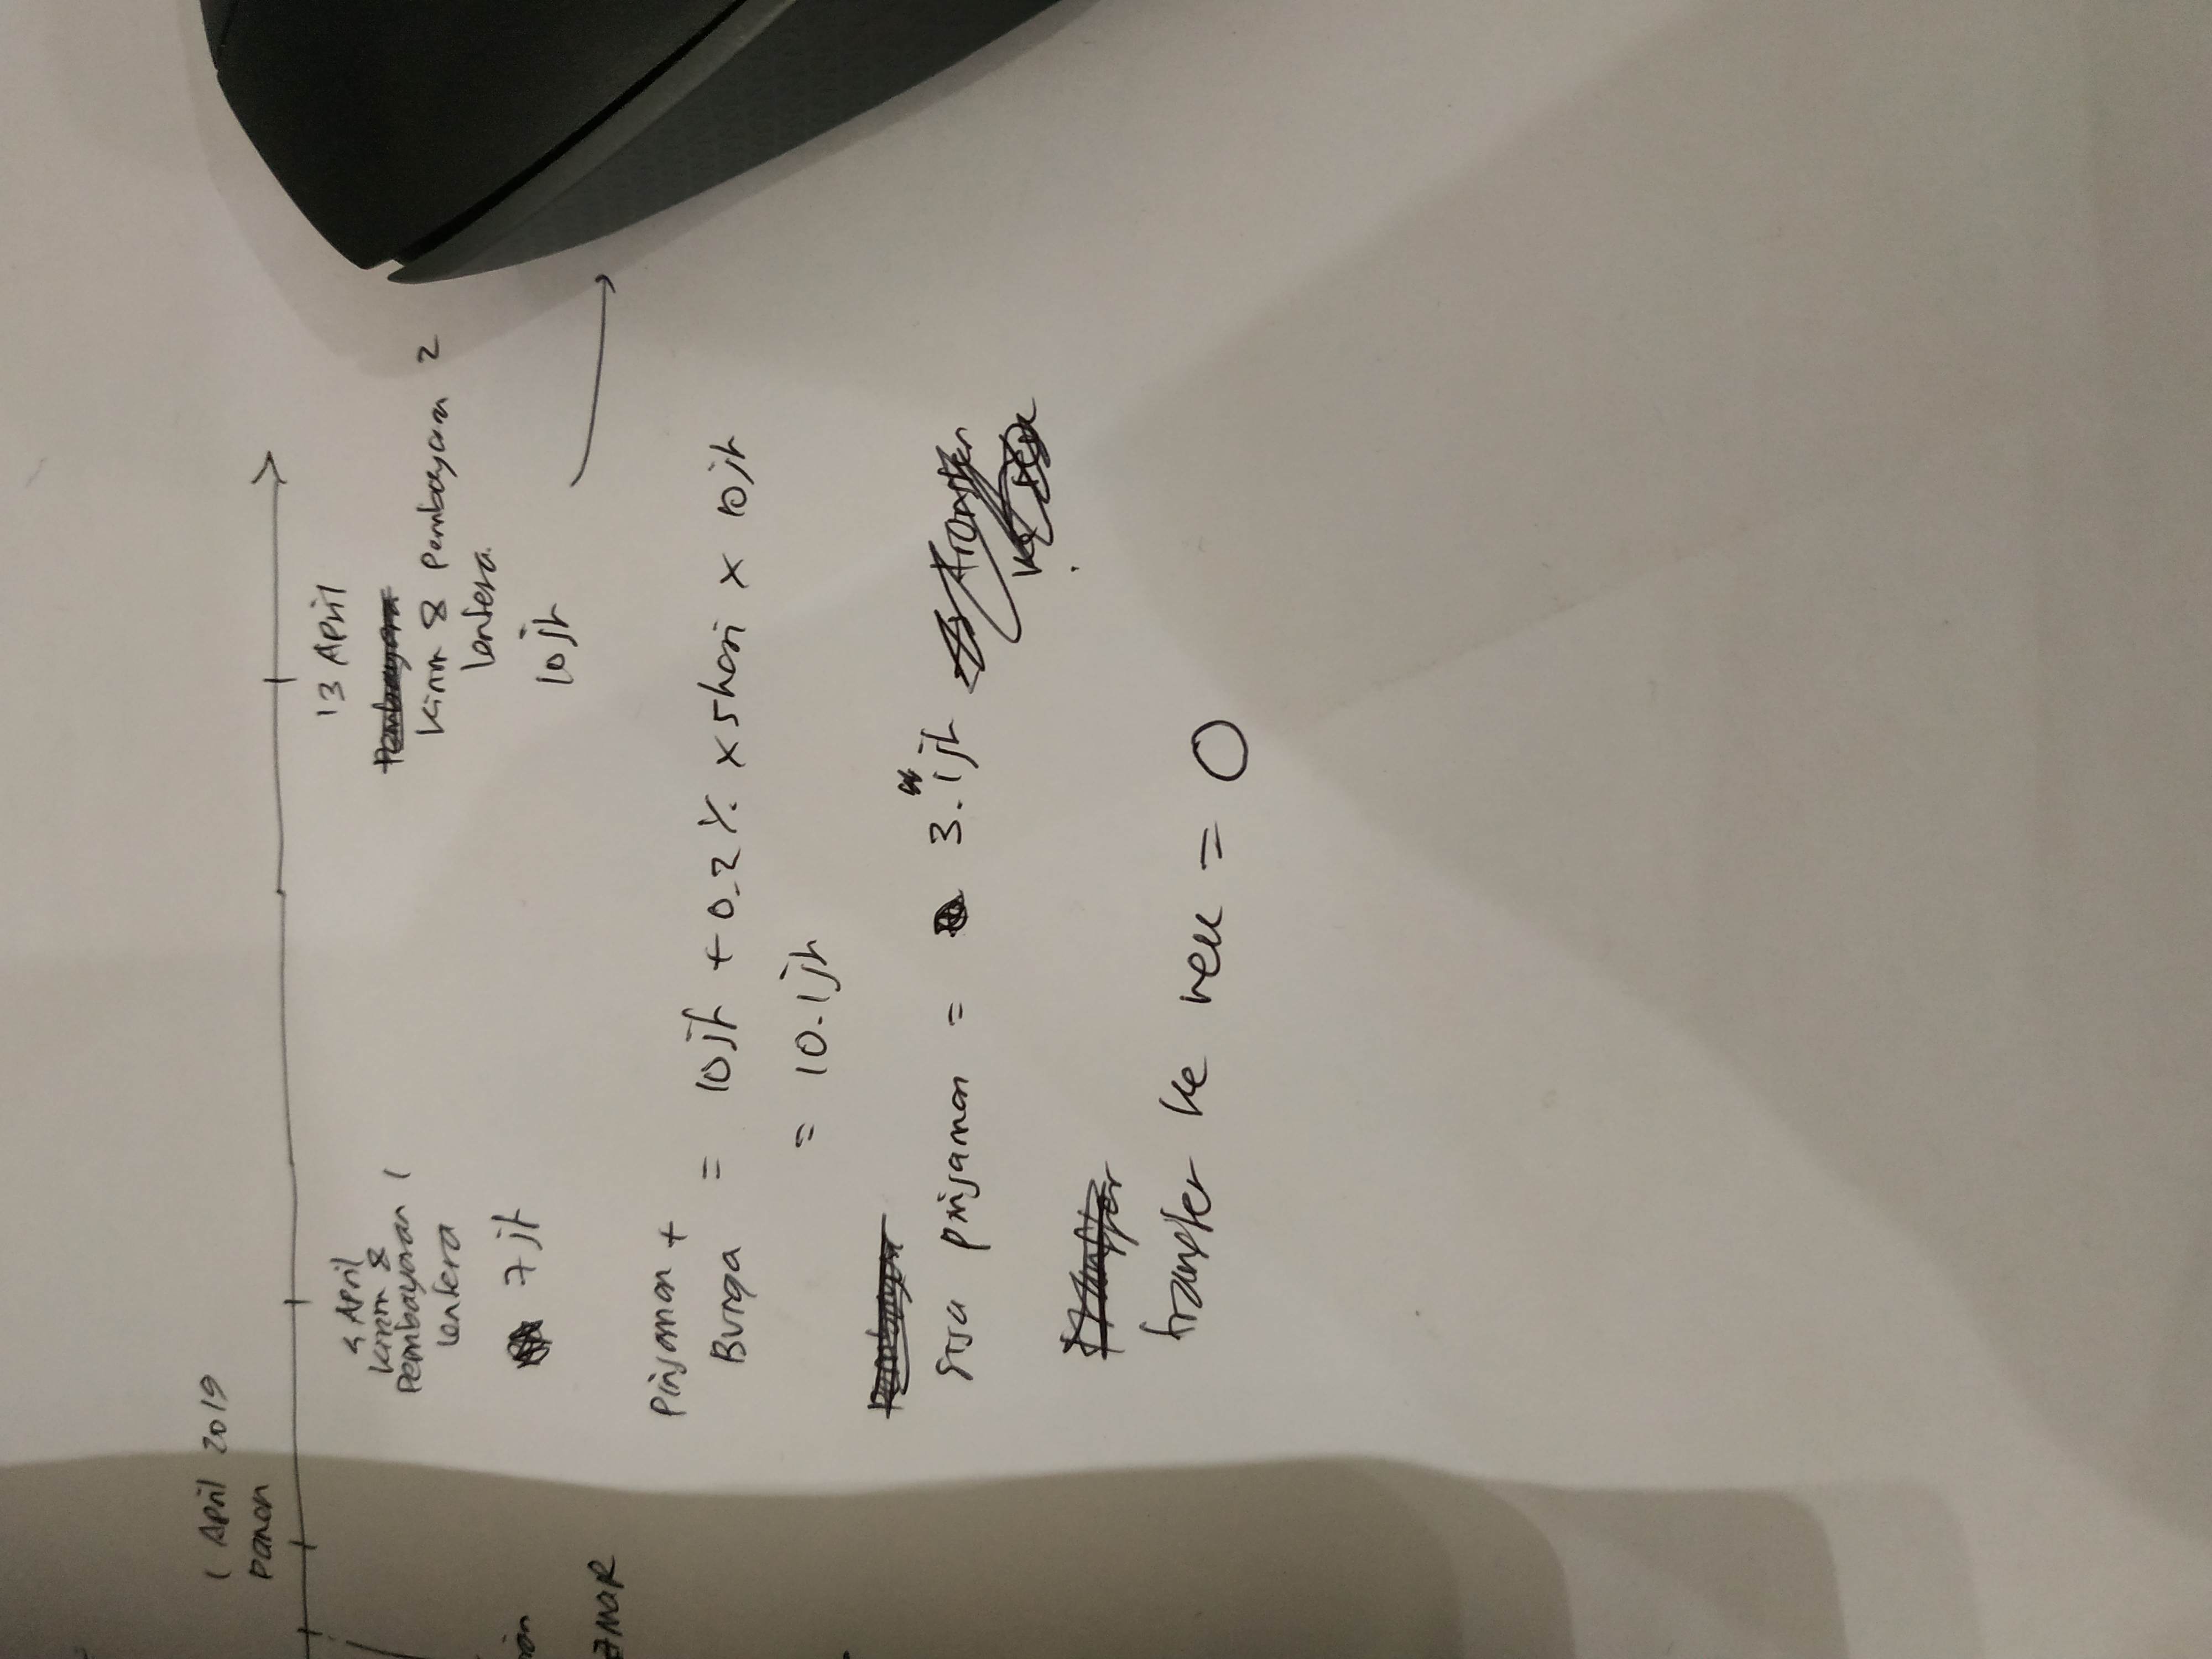 1 April 2019
panen
4 April
kirim &
Pembayaran 1
lentera
7 jt
13 April
Pembayara
kirim & Pembayaran 2
lentera.
10 jt
Pinjaman +
Bunga = 10jt + 0.2% x 5 hari x 10 jt
= 10.1 jt
sisa pinjaman = 3.1 jt transfer
ke
transfer
transfer ke rek = 0